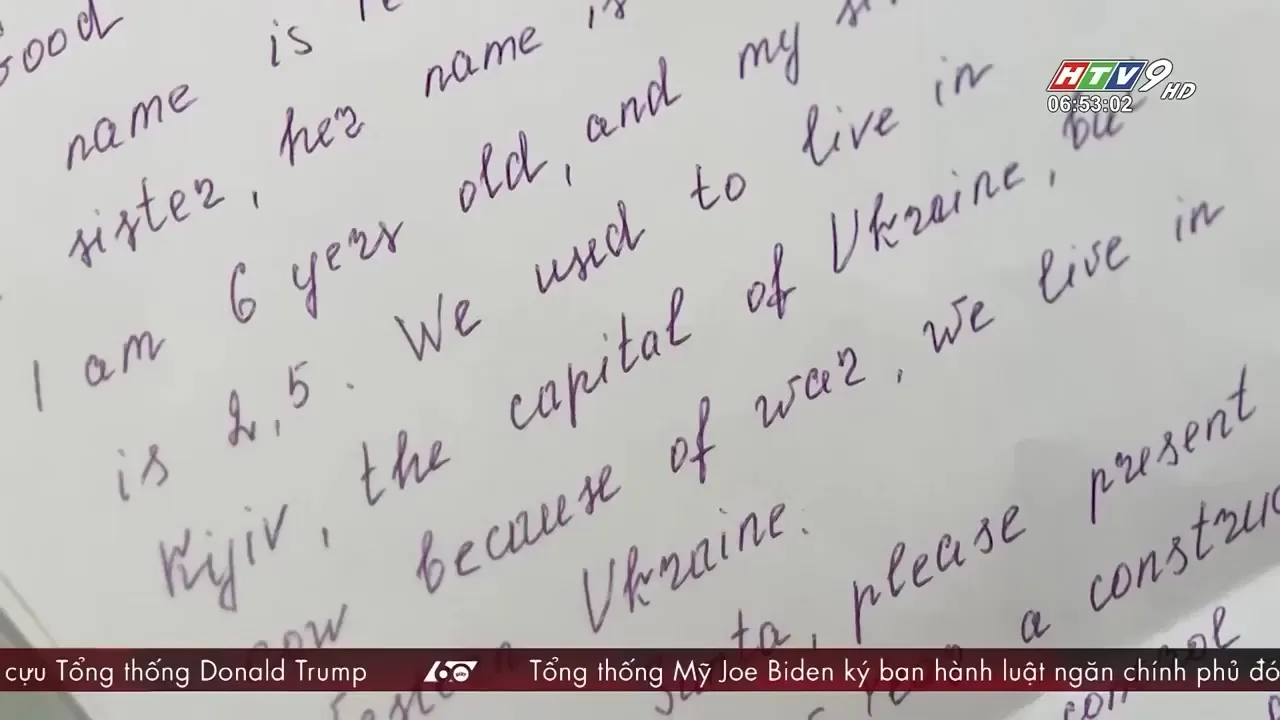 Good
name is
sister, her name is
I am 6 yers old, and my
is 2,5. We used to live in
Kyiv, the capital of Ukraine,
now because of war, we live in
Ukraine.
please present
a
HTV9 HD
06:53:02
cựu Tổng thống Donald Trump 60 giây Tổng thống Mỹ Joe Biden ký ban hành luật ngăn chính phủ đó